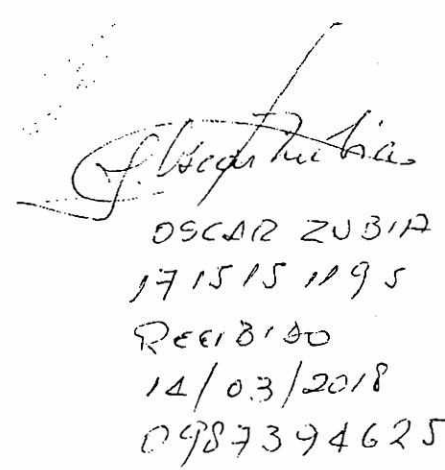 Oscar Zubia
OSCAR ZUBIA
1715151195
RECIBIDO
14/03/2018
0987394625